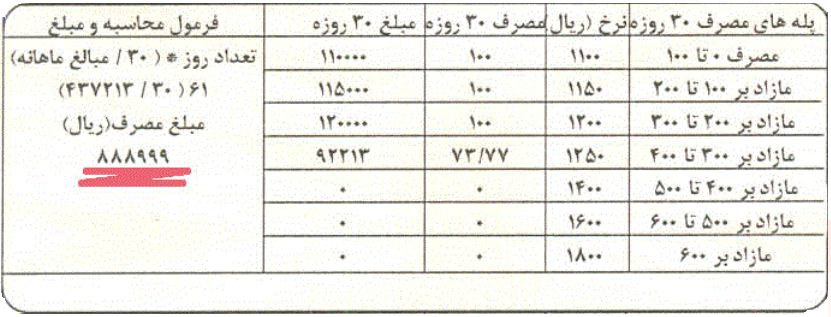 پله های مصرف ۳۰ روزه نرخ (ریال) مصرف ۳۰ روزه مبلغ ۳۰ روزه فرمول محاسبه و مبلغ
مصرف ۰ تا ۱۰۰ ۱۱۰۰ ۱۰۰ ۱۱۰۰۰۰ تعداد روز * (۳۰ / مبالغ ماهانه)
مازاد بر ۱۰۰ تا ۲۰۰ ۱۱۵۰ ۱۰۰ ۱۱۵۰۰۰ ۶۱ (۴۳۷۲۱۳ / ۳۰)
مازاد بر ۲۰۰ تا ۳۰۰ ۱۲۰۰ ۱۰۰ ۱۲۰۰۰۰ مبلغ مصرف(ریال)
مازاد بر ۳۰۰ تا ۴۰۰ ۱۲۵۰ ۷۳/۷۷ ۹۲۲۱۳ ۸۸۸۹۹۹
مازاد بر ۴۰۰ تا ۵۰۰ ۱۴۰۰ ۰ ۰
مازاد بر ۵۰۰ تا ۶۰۰ ۱۶۰۰ ۰ ۰
مازاد بر ۶۰۰ ۱۸۰۰ ۰ ۰